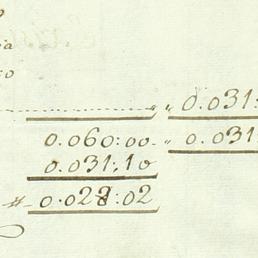 0.031:
0.060:00. 0.031
0.031:10
0.028:02